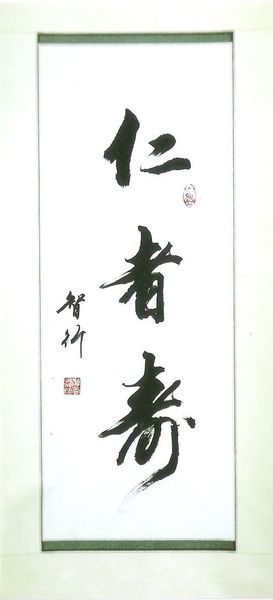 仁者寿
智行